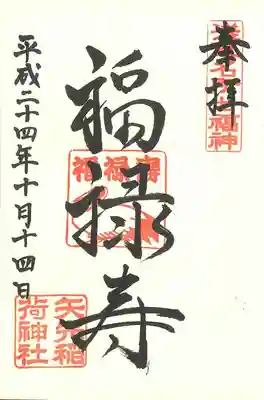 奉拝
浅草名所七福神
福禄寿
福禄壽
平成二十四年十月十四日
矢先稲
荷神社